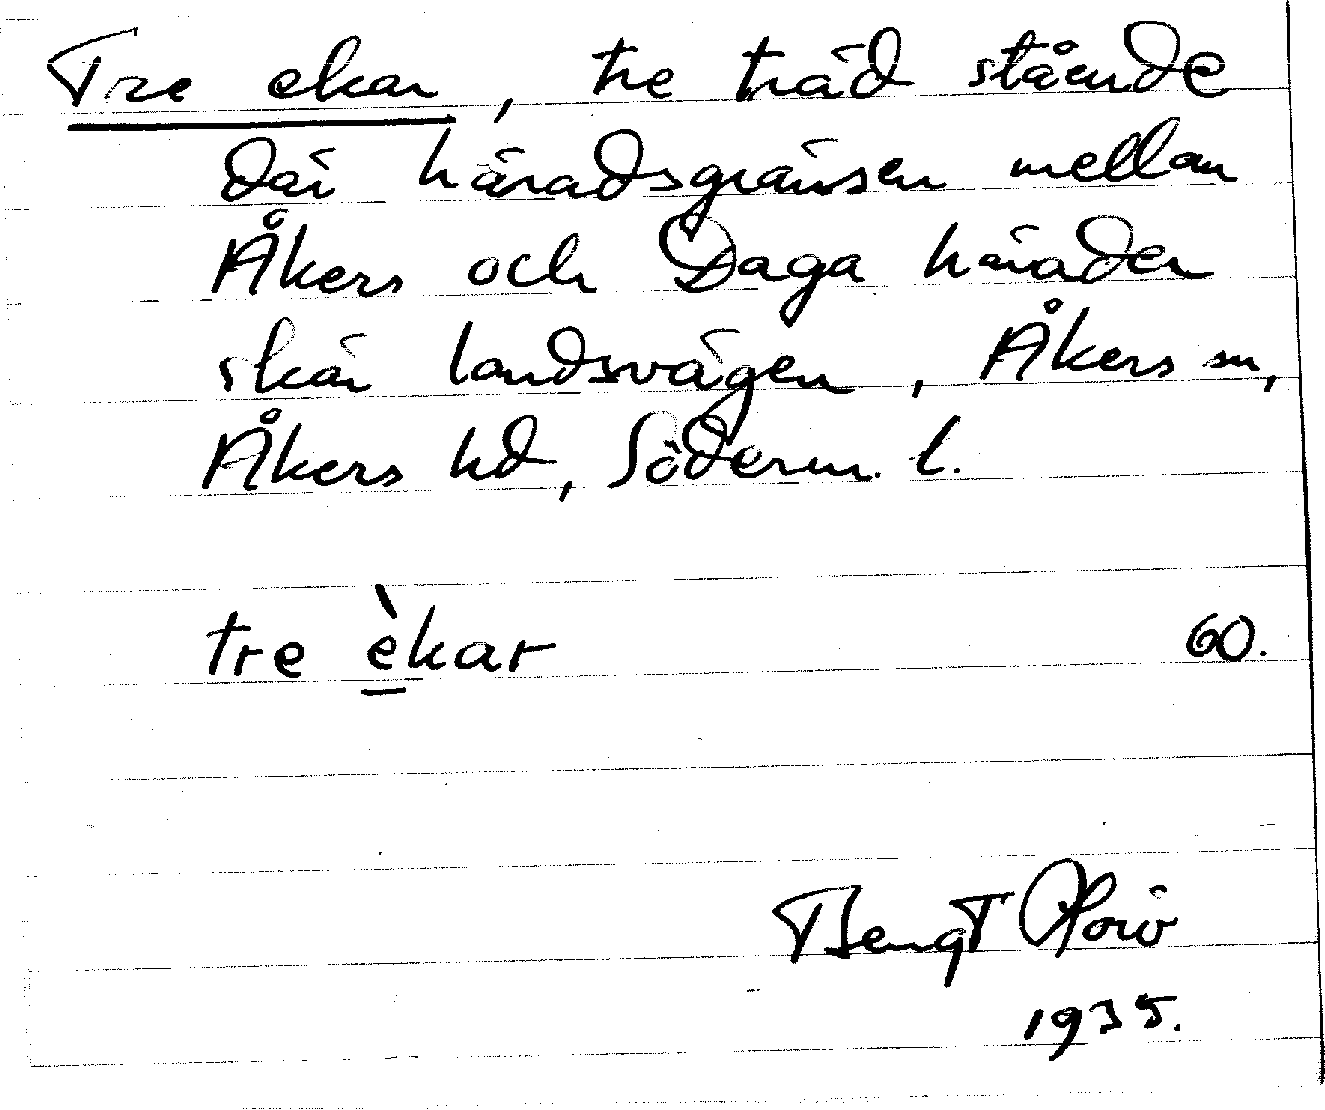 Tre ekar, tre träd stående
där häradsgränsen mellan
Åkers och Daga härader
skär landsvägen, Åkers sn,
Åkers hd, Söderm. l.
tre èkar 60.
Bengt
1935.